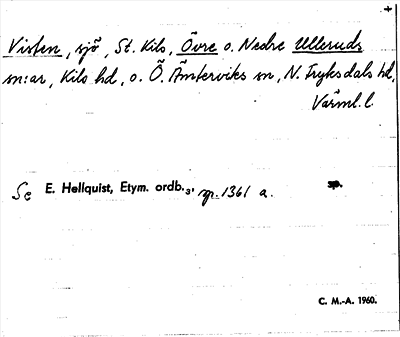 +
Visten, sjö, St. Kils, Övre o. Nedre Ulleruds
sn:ar, Kils hd, o. Ö. Ämterviks sn, N. Fryksdals hd,
Värml. l
Se E. Hellquist, Etym. ordb.₃, sp. 1361 a.
sp.
C. M.-A. 1960.